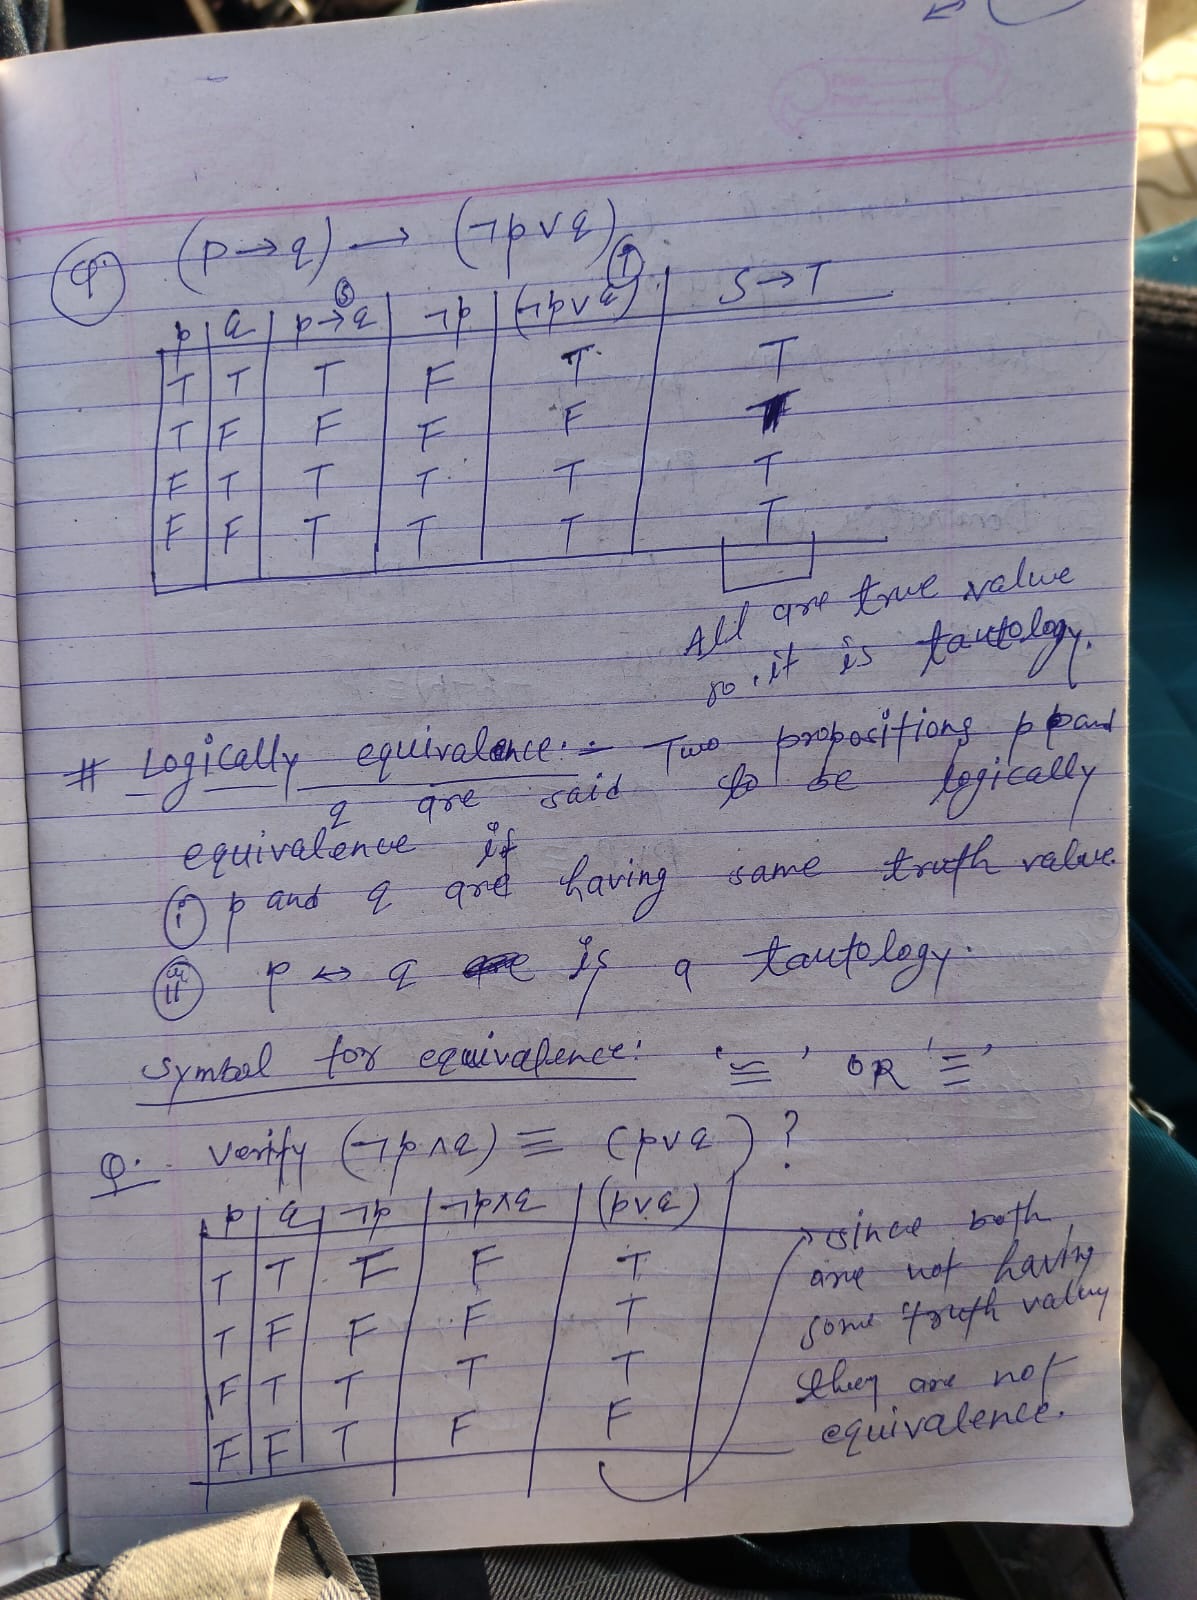 Q. (p→q) → (¬p∨q)
p q p→q (S) ¬p (¬p∨q) (T) S→T
T T T F T T
T F F F F T
F T T T T T
F F T T T T
All are true value
so, it is tautology.
# Logically equivalence:- Two propositions p pand
q are said to be logically
equivalence if
(i) p and q are having same truth value.
(ii) p ↔ q is a tautology.
Symbol for equivalence: '≌' OR '≡'
Q. Verify (¬p∧q) ≡ (p∨q) ?
p q ¬p ¬p∧q (p∨q)
T T F F T
T F F F T
F T T T T
F F T F F
→ since both
are not having
same truth value
they are not
equivalence.